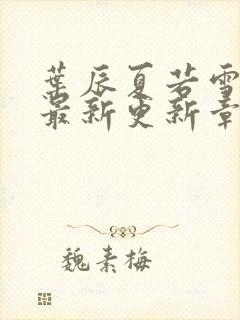 葉辰夏若雪
最新更新章
魏素梅